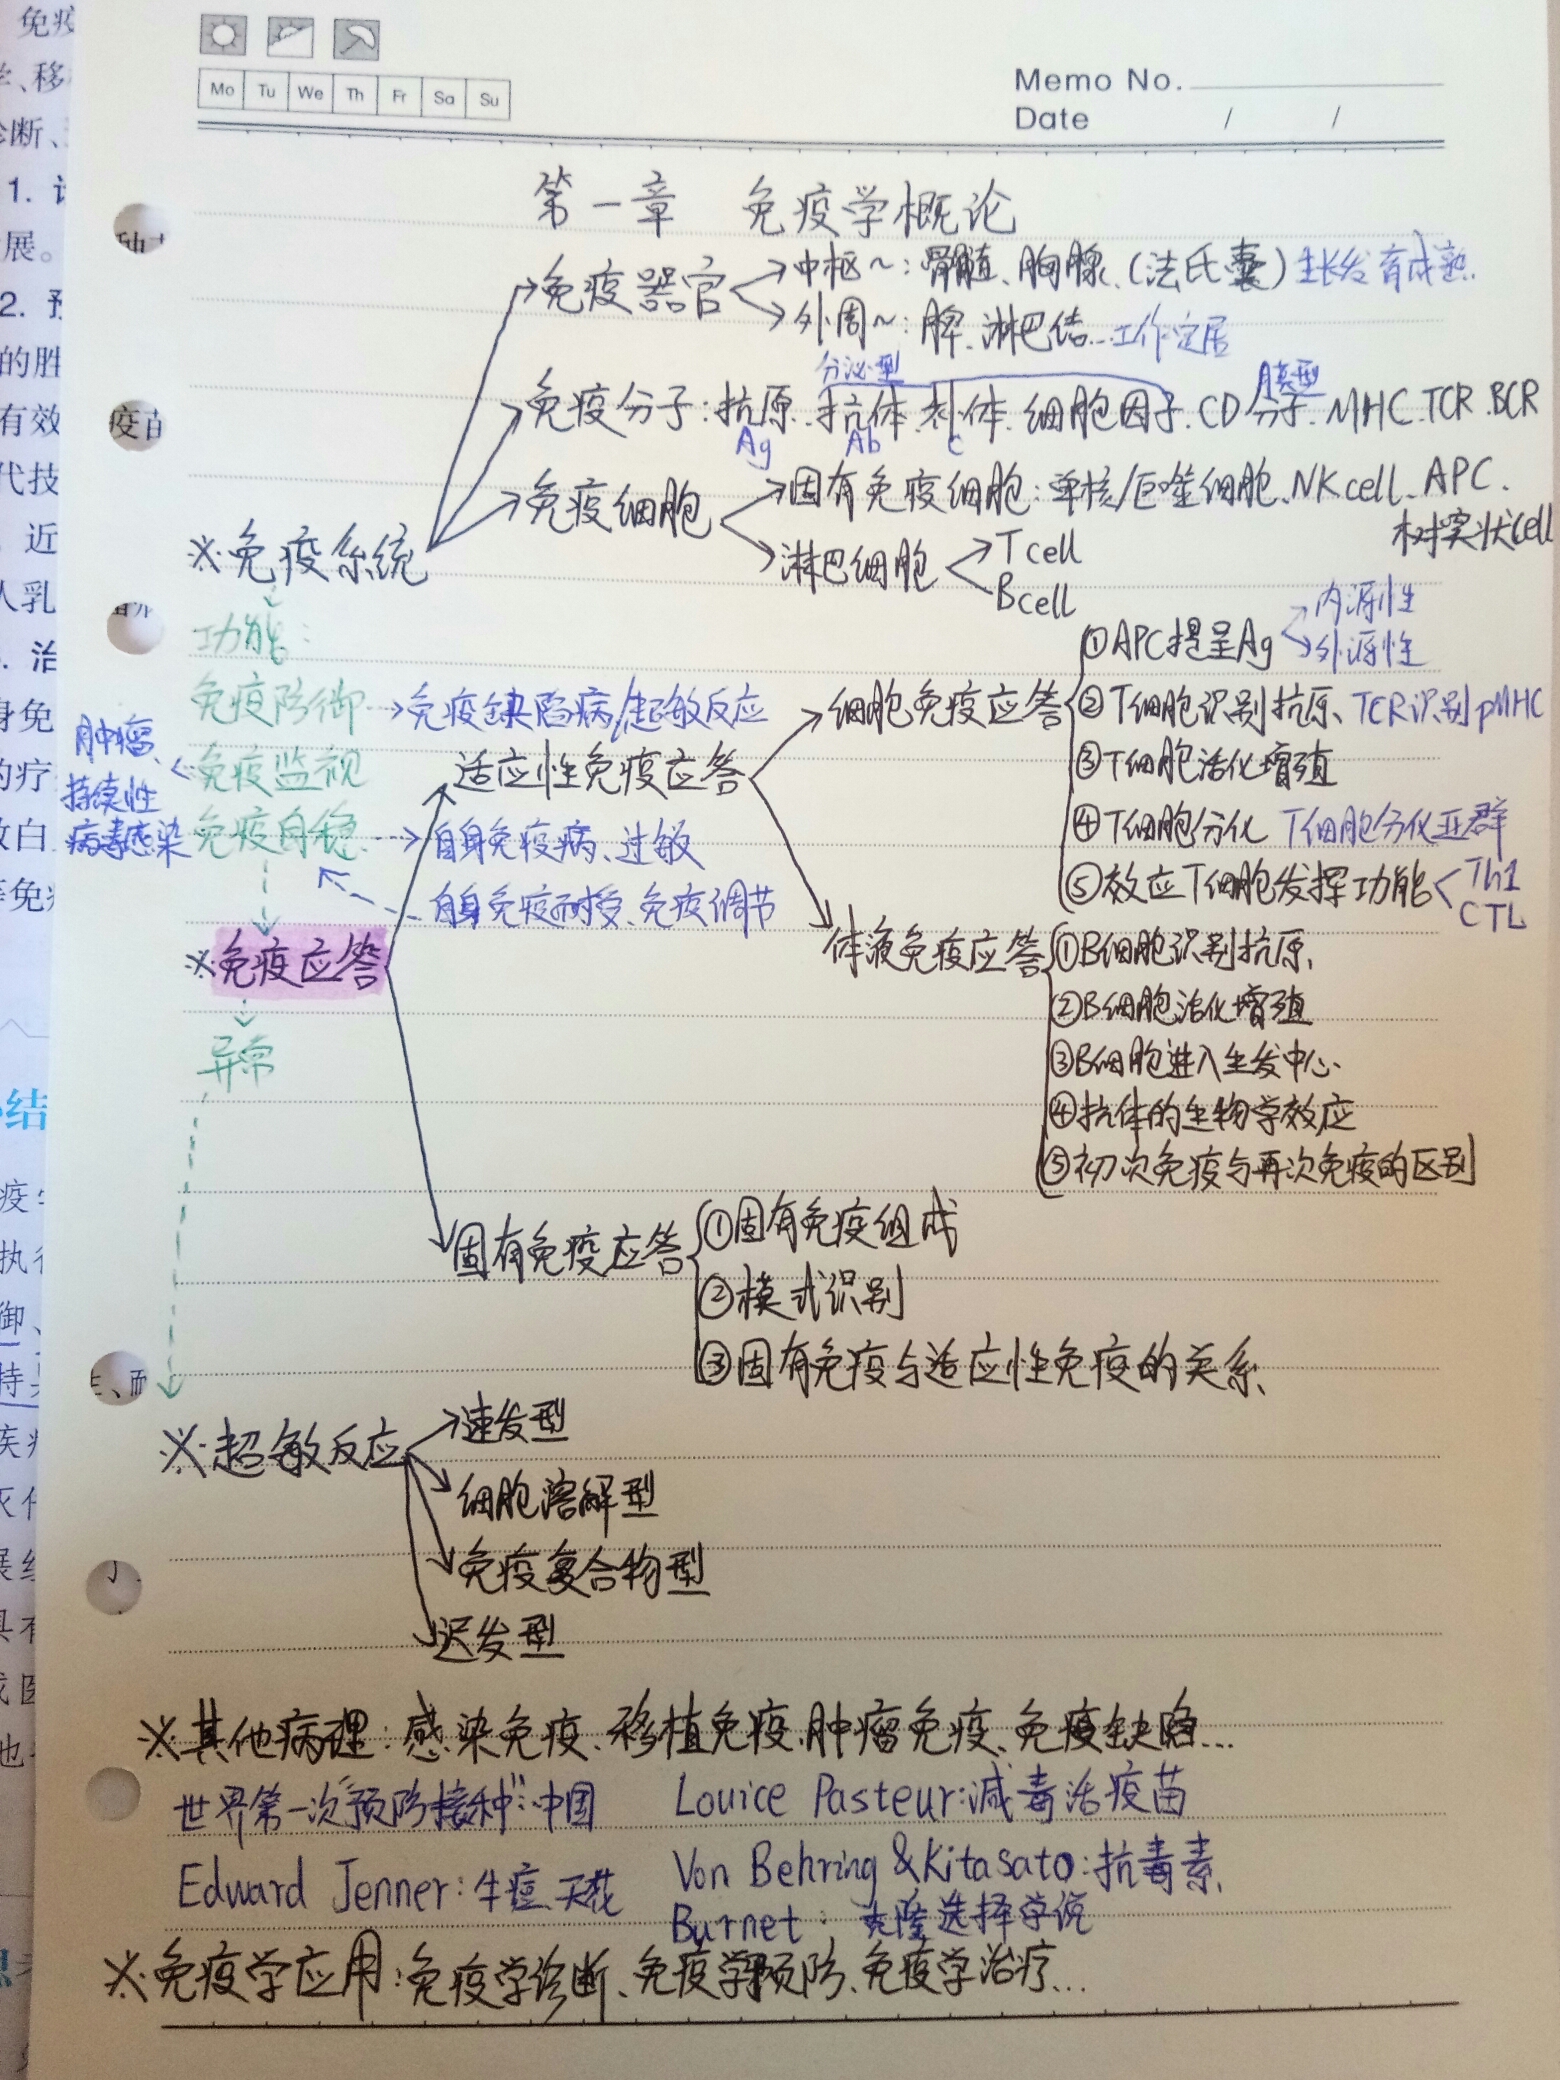 Mo Tu We Th Fr Sa Su
Memo No.
Date / /
第一章 免疫学概论
免疫器官
中枢~:骨髓、胸腺、(法氏囊)生长发育成熟.
外周~:脾、淋巴结...工作定居
分泌型
膜型
免疫分子:抗原、抗体、补体、细胞因子、CD分子、MHC、TCR、BCR
Ag Ab C
免疫细胞
固有免疫细胞:单核/巨噬细胞、NKcell、APC、
树突状cell
淋巴细胞
Tcell
Bcell
※免疫系统
功能:
免疫防御
免疫缺陷病/超敏反应
免疫监视
肿瘤、
持续性
病毒感染
免疫自稳
自身免疫病、过敏
自身免疫耐受、免疫调节
※免疫应答
适应性免疫应答
细胞免疫应答
①APC提呈Ag
内源性
外源性
②T细胞识别抗原、TCR识别pMHC
③T细胞活化增殖
④T细胞分化 T细胞分化亚群
⑤效应T细胞发挥功能
Th1
CTL
体液免疫应答
①B细胞识别抗原、
②B细胞活化增殖
③B细胞进入生发中心
④抗体的生物学效应
⑤初次免疫与再次免疫的区别
异常
固有免疫应答
①固有免疫组成
②模式识别
③固有免疫与适应性免疫的关系
※超敏反应
速发型
细胞溶解型
免疫复合物型
迟发型
※其他病理:感染免疫、移植免疫、肿瘤免疫、免疫缺陷...
世界第一次"预防接种":中国
Louice Pasteur:减毒活疫苗
Edward Jenner:牛痘、天花
Von Behring &Kitasato:抗毒素
Burnet:克隆选择学说
※免疫学应用:免疫学诊断、免疫学预防、免疫学治疗...